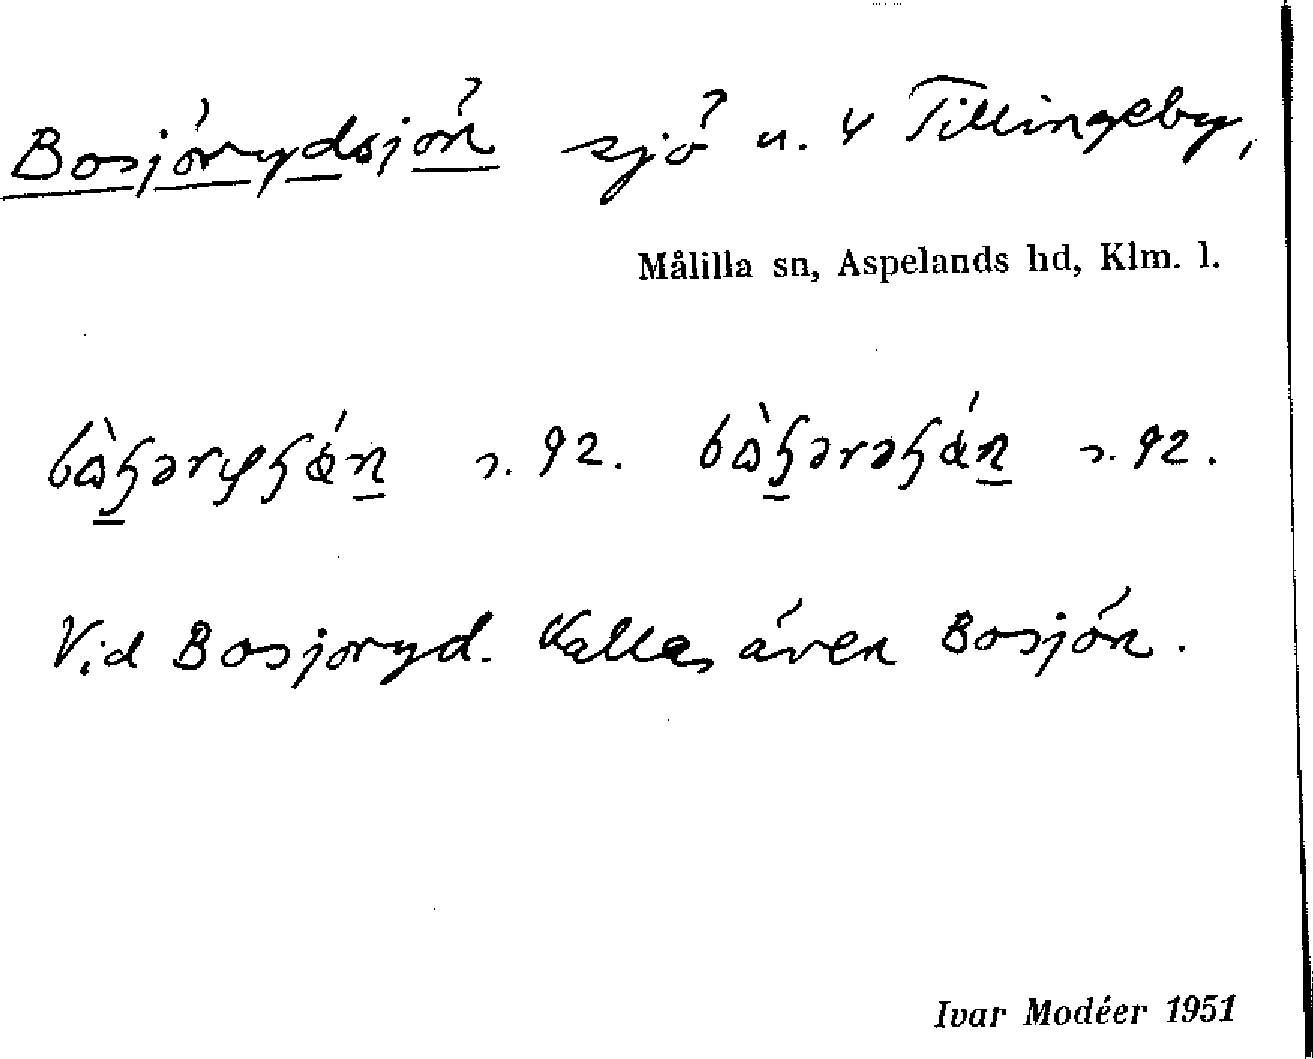 Bosjörydsjön sjö u. 4 Tillingeby,
Målilla sn, Aspelands hd, Klm. l.
s. 92. s. 92.
Vid Bosjöryd. Kallas även Bosjön.
Ivar Modéer 1951